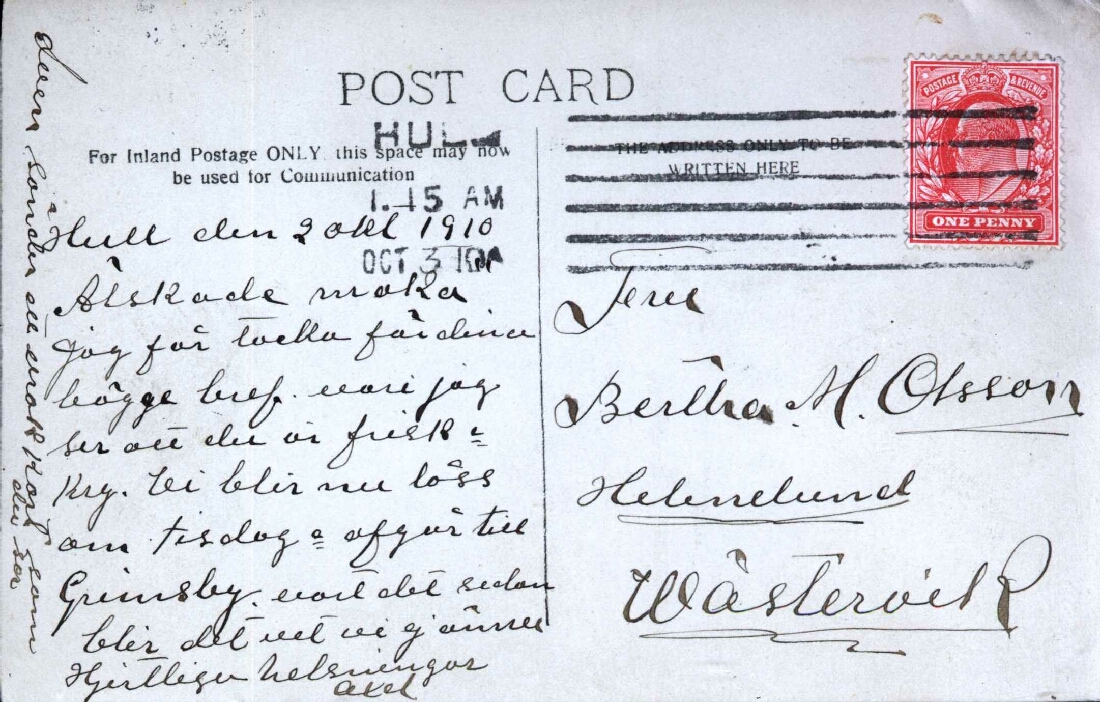 POST CARD
HUL
For Inland Postage ONLY this space may now
be used for Communication
THE ADDRESS ONLY TO BE
WRITTEN HERE
1.15 AM
OCT 3 10
POSTAGE & REVENUE
ONE PENNY
Hull den 2 okt 1910
Älskade maka
jag får tacka för dina
bägge bref. vari jag
ser att du är frisk
kry. Vi blir nu löss
om tisdag afgår till
Grimsby. vart det sedan
blir det vet vi ej ännu
Hjertliga helsningar
Axel
även sänder ett kort som
du ser
Fru
Bertha. M. Olsson
Helenelund
Wästervik